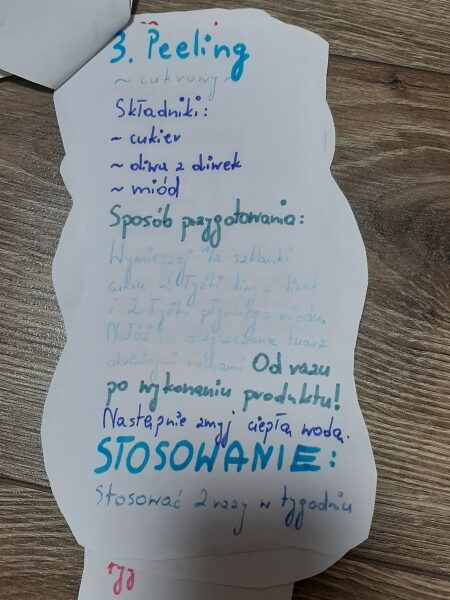 3. Peeling
~ cukrowy ~
Składniki:
~ cukier
~ oliwa z oliwek
~ miód
Sposób przygotowania:
Wymieszaj 1/2 szklanki
cukru, 2 łyżki oliwy z oliwek
i 2 łyżki płynnego miodu.
Nałóż na oczyszczoną twarz
okrężnymi ruchami Od razu
po wykonaniu produktu!
Następnie zmyj ciepłą wodą.
STOSOWANIE:
Stosować 2 razy w tygodniu